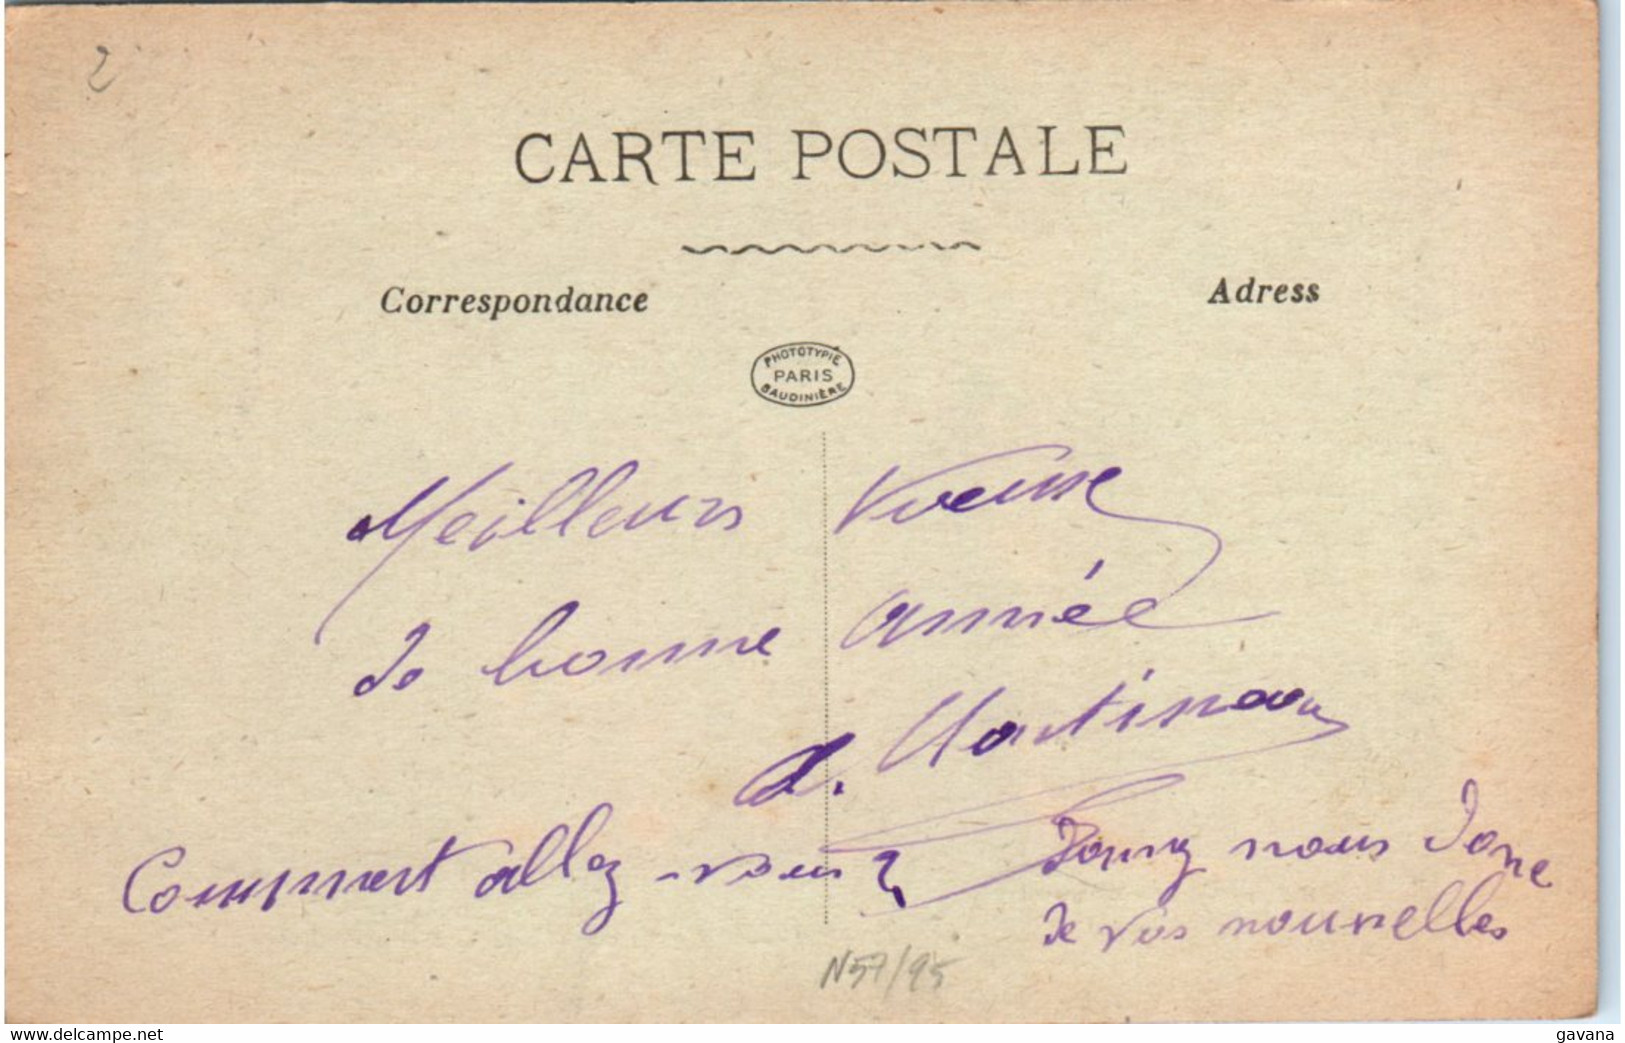 2
CARTE POSTALE
Correspondance
Adress
PHOTOTYPIE
PARIS
BAUDINIÈRE
Meilleurs Voeux
de bonne année
A. Martineau
Comment allez-vous ?
nous donc
de vos nouvelles
N57/95
delcampe.net
gavana